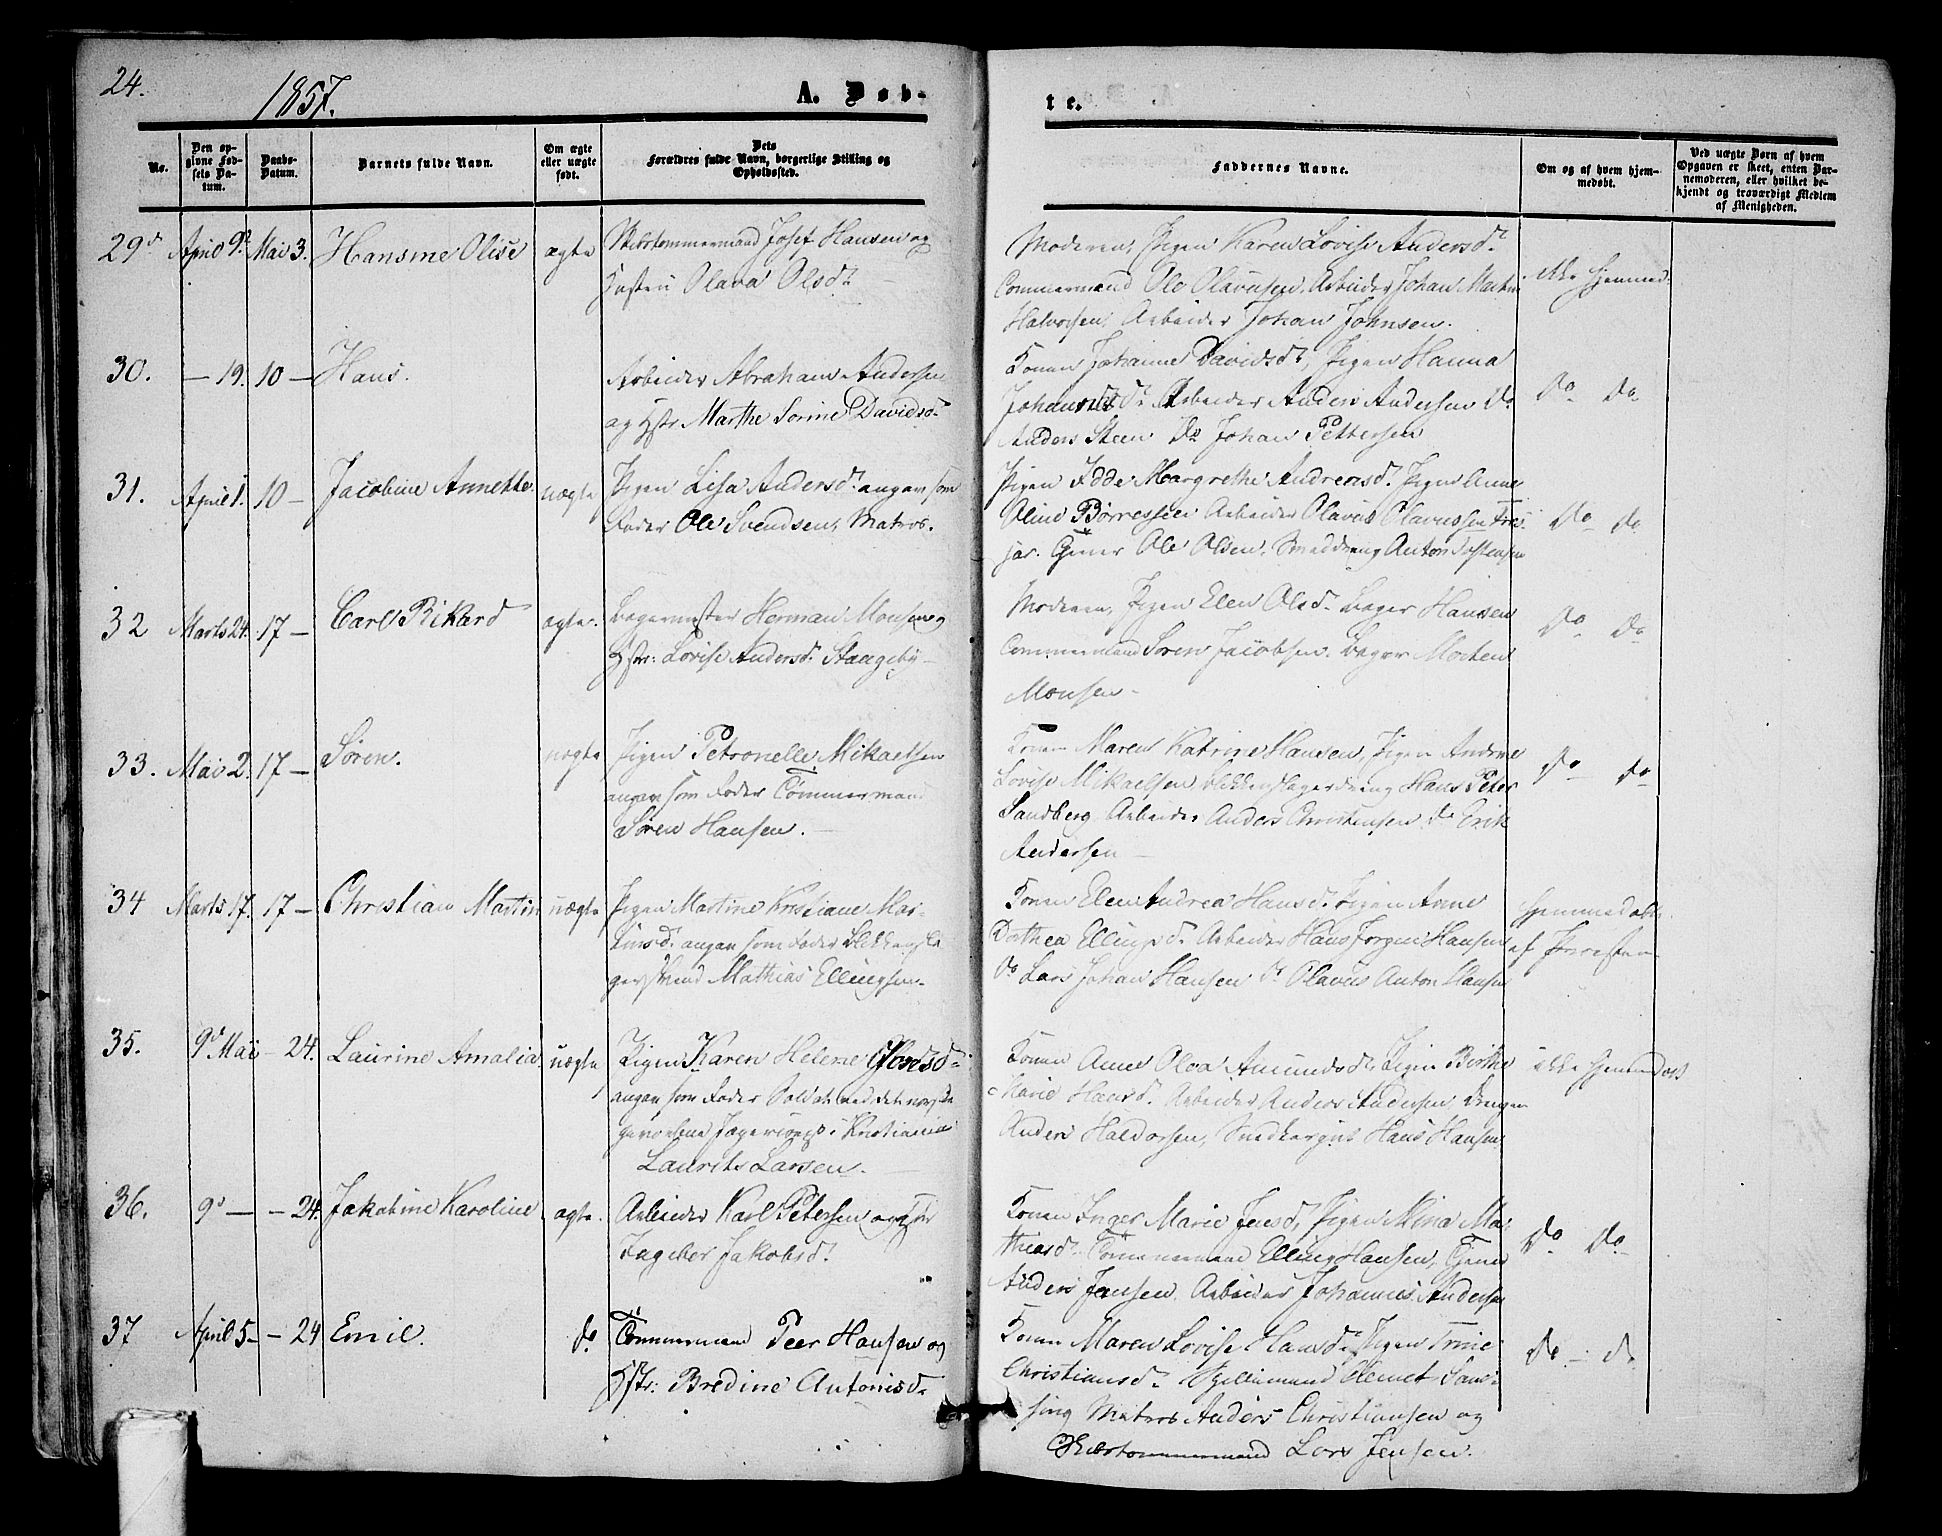 24.
1857.
A. Døb-
te.
No.
Den op-
givne Fød-
sels Da-
tum.
Daabs-
Datum.
Barnets fulde Navn.
Om ægte
eller uægte
født.
Dets
Forældres fulde Navn, borgerlige Stilling og
Opholdssted.
Faddernes Navne.
Om og af hvem hjem-
medøbt.
Ved uægte Børn af hvem
Opgaven er skeet, enten Bar-
nemoderen, eller hvilket be-
kjendt og troværdigt Medlem
af Menigheden.
29 April 9 Mai 3. Hansine Olise ægte
Skibstømmermand Josef Hansen og
Hustru Olava Olsd.
Moderen, Pigen Karen Lovise Andersd.
Tømmermand Ole Olausen, Arbeider Johan Martin
Halvorsen, Arbeider Johan Johnsen.
ikke hjemmed.
30. — 19. 10 — Hans.
Arbeider Abraham Andersen
og Hstr Marthe Sorine Davidsd.
Konen Johanne Davidsd, Pigen Hanna
Johannesd. Arbeider Anders Andersen Do
Anders Steen Do Johan Pettersen
Do Do
31. April 1. 10 — Jacobine Annette uægte
Pigen Lisa Andersd. angav som
Fader Ole Svendsen, Matros.
Pigen Edde Margrethe Andreasd. Pigen Anne
Oline Børressen Arbeider Olavus Olavussen
Tjener Ole Olsen, Smeddreng Anton
Do do
32 Marts 24. 17 — Carl Rikard ægte.
Bagermester Herman Monsen og
Hstr: Lovise Andersd. Stangeby —
Moderen, Pigen Elen Olsd. Bager Hansen
Tømmermand Søren Jacobsen. Bager Morten
Monsen —
Do Do
33. Mai 2. 17 — Søren. uægte
Pigen Petronelle Mikaelsen
angav som Fader Tømmermand
Søren Hansen. —
Konen Maren Katrine Hansen, Pigen Andrine
Lovise Mikaelsen, Blikkenslagerdreng Hans Peter
Sandberg, Arbeider Anders Christensen, do Erik
Andersen —
Do — Do
34 Marts 17. 17 — Christian Martin uægte
Pigen Martine Kristiane Mar-
tinsd. angav som Fader Blikkensla-
gersvend Mathias Ellingsen.
Konen Elen Andrea Hansd. Pigen Anne
Dorthea Ellingsd. Arbeider Hans Jørgen Hansen
Do Lars Johan Hansen do Olavus Anton Hansen
Hjemmedøbt
af Præsten
35. 9 Mai — 24. Laurine Amalia. uægte
Pigen Karen Helene
angav som Fader Soldat ved det norske
Jægercorps i Kristiania
Laurits Larsen. —
Konen Anne Olea Amundsd. Pigen Birthe
Marie Hansd. Arbeider Anders Andersen, Drengen
Anders Haldorsen, Hans Hansen
ikke hjemmedøbt
36. 9 — — 24. Jakobine Karoline ægte.
Arbeider Karl Petersen og Hstr
Ingebor Jakobsd.
Konen Inger Marie Jensd, Pigen Mina Ma-
thiasd. Tømmermand Elling Hansen, Tjener
Anders Jensen. Arbeider Johannes Andersen
Do Do
37 April 5 — 24 Emil. do
Tømmermand Peer Hansen og
Hstr: Bredine Antonisd.
Konen Maren Lovise Hansd. Pigen Trine
Christiansd. Clemet
Matros Anders Christiansen og
Skibstømmermand Lars Jensen.
Do — do